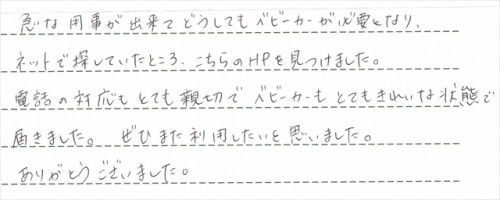 急な用事が出来てどうしてもベビーカーが必要となり、
ネットで探していたところ、こちらのHPを見つけました。
電話の対応もとても親切でベビーカーもとてもきれいな状態で
届きました。 ぜひまた利用したいと思いました。
ありがとうございました。